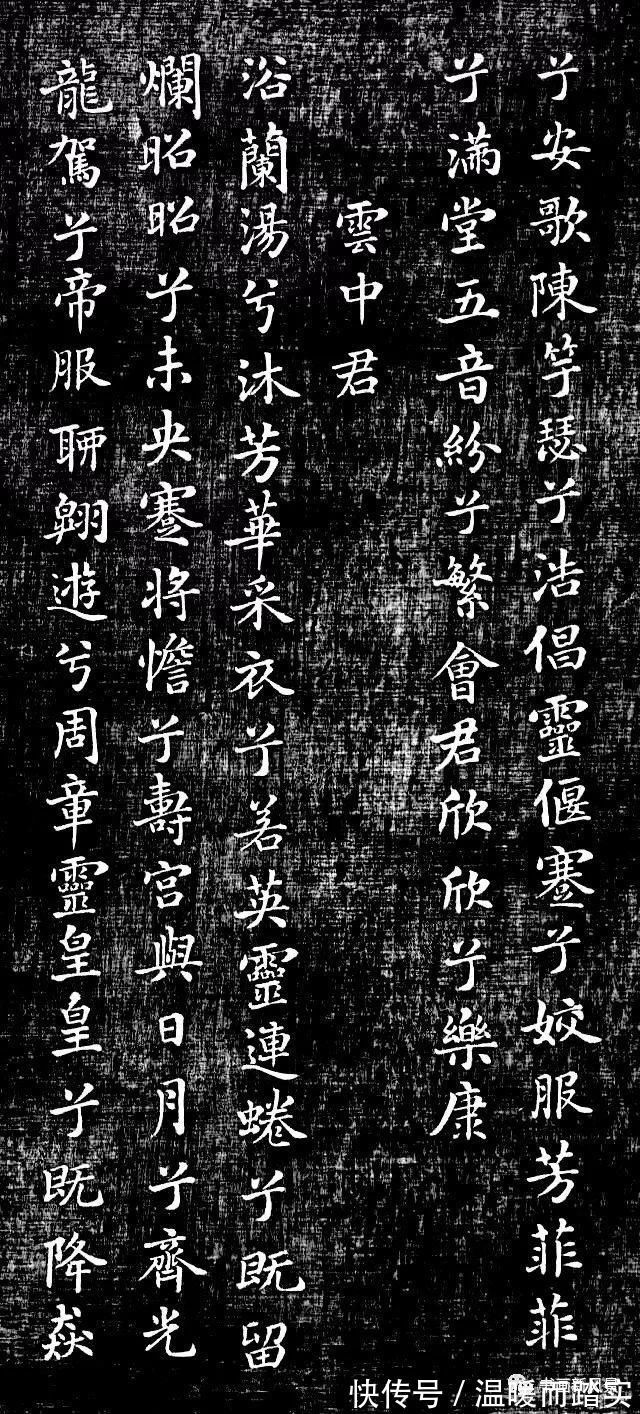 兮安歌陳竽瑟兮浩倡靈偃蹇兮姣服芳菲菲
兮滿堂五音紛兮繁會君欣欣兮樂康
雲中君
浴蘭湯兮沐芳華采衣兮若英靈連蜷兮既留
爛昭昭兮未央蹇將憺兮壽宮與日月兮齊光
龍駕兮帝服聊翱遊兮周章靈皇皇兮既降猋
快传号 / 温暖而踏实